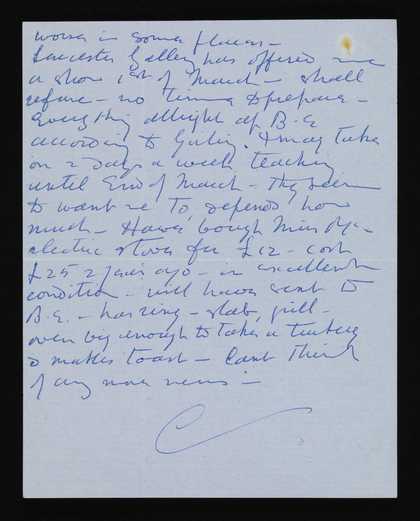 worse in some places –
Leicester Galley has offered me
a show 1st of March – shall
refuse – no time to prepare –
Everything allright at B.E
according to . I may take
on 2 days a week teaching
until End of March – they seem
to want me to, depends how
much – Have bough Miss
electric stove for £12 – cost
£25 2 years ago – in excellent
condition – will have sent to
B.E. – has ring – slab, grill –
oven big enough to take a turkey
& makes toast – Cant Think
of any more news –
C